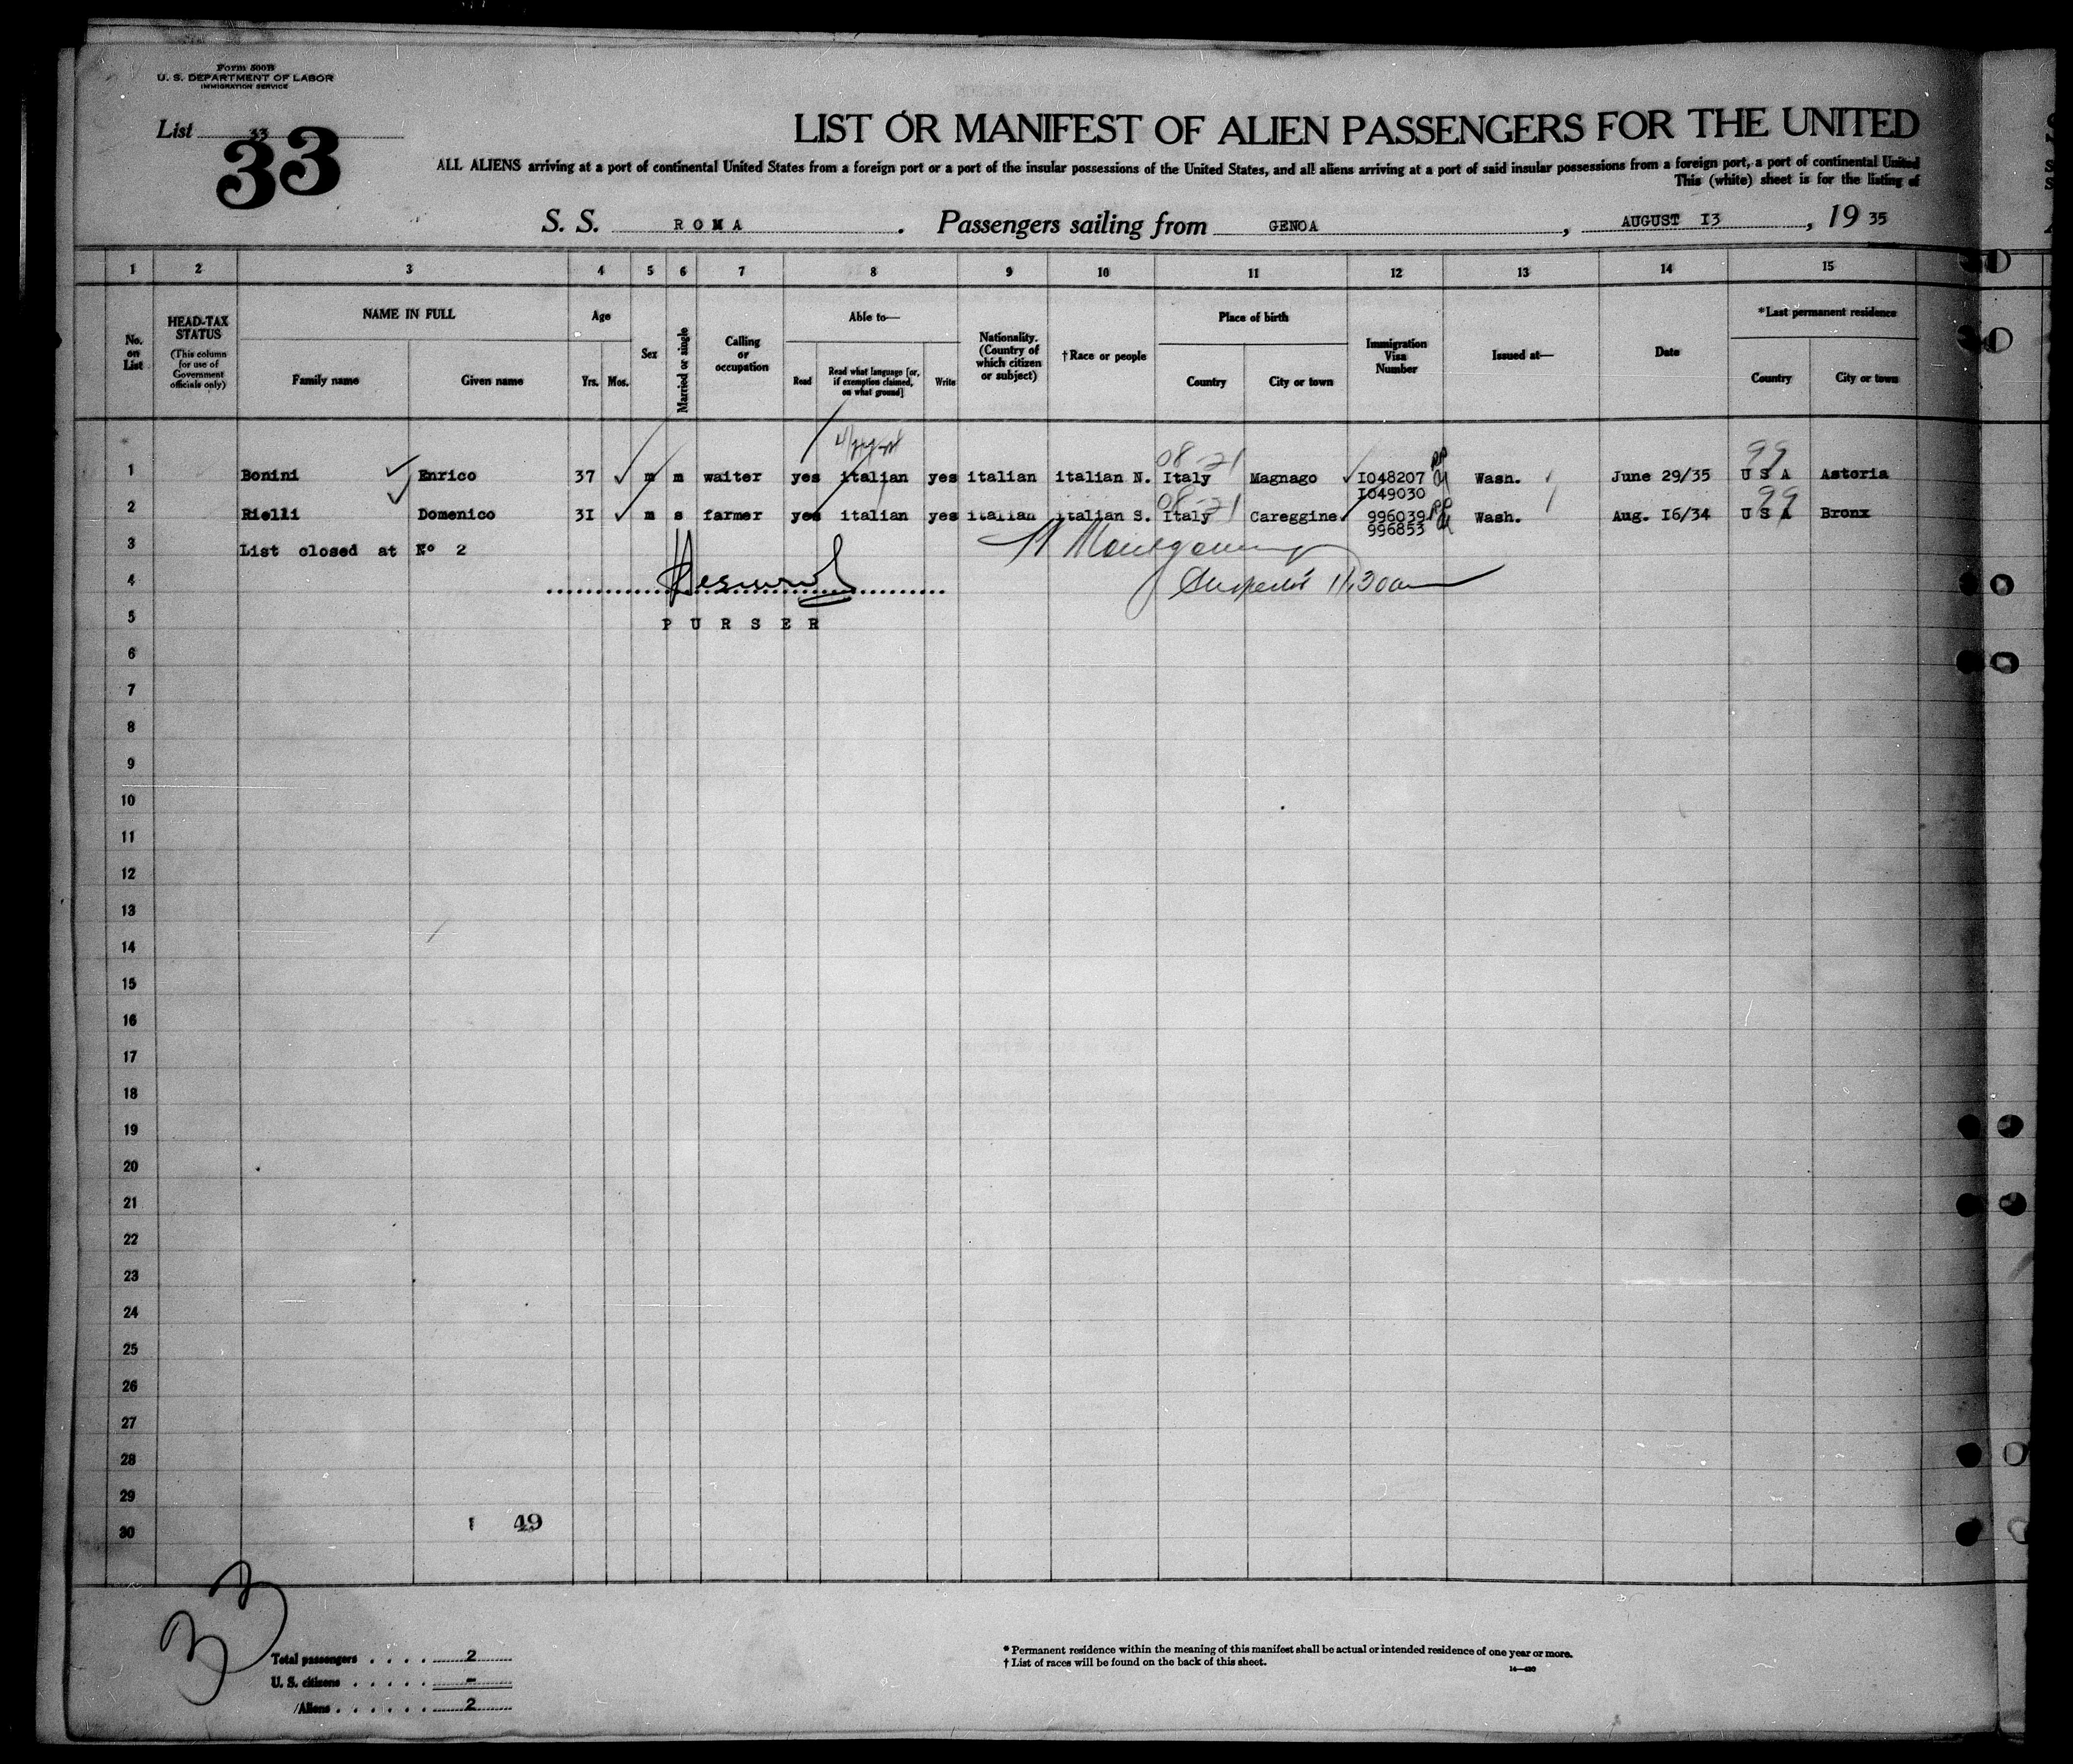 Form 500B
U. S. DEPARTMENT OF LABOR
IMMIGRATION SERVICE
List 33
33
LIST OR MANIFEST OF ALIEN PASSENGERS FOR THE UNITED
ALL ALIENS arriving at a port of continental United States from a foreign port or a port of the insular possessions of the United States, and all aliens arriving at a port of said insular possessions from a foreign port, a port of continental United
This (white) sheet is for the listing of
S. S. ROMA. Passengers sailing from GENOA, AUGUST I3, 19 35
1 2 3 4 5 6 7 8 9 10 11 12 13 14 15
No. on List
HEAD-TAX STATUS
(This column for use of Government officials only)
NAME IN FULL
Family name Given name
Age
Yrs. Mos.
Sex
Married or single
Calling or occupation
Able to—
Read
Read what language [or, if exemption claimed, on what ground]
Write
Nationality. (Country of which citizen or subject)
†Race or people
Place of birth
Country City or town
Immigration Visa Number
Issued at—
Date
*Last permanent residence
Country City or town
08-21 99
1 Bonini Enrico 37 m m waiter yes italian yes italian italian N. Italy Magnago I048207 Wash. June 29/35 U S A Astoria
I049030
08-21 99
2 Rielli Domenico 3I m s farmer yes italian yes italian italian S. Italy Careggine 996039 Wash. Aug. I6/34 U S A Bronx
996853
3 List closed at Nº 2
Montgomery
4
Inspector 11.30am
5 PURSER
6
7
8
9
10
11
12
13
14
15
16
17
18
19
20
21
22
23
24
25
26
27
28
29
30
49
33
Total passengers . . . . 2
U. S. citizens . . . . . -
Aliens . . . . . . 2
* Permanent residence within the meaning of this manifest shall be actual or intended residence of one year or more.
† List of races will be found on the back of this sheet.